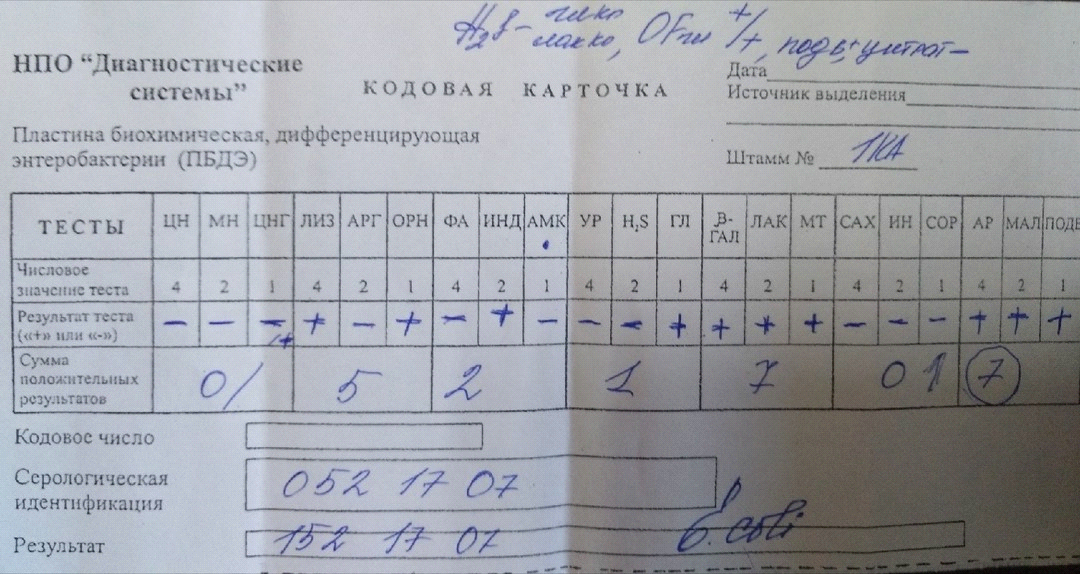 H₂S-
лакко, OF гл +/+, подв+ цитрат-
НПО “Диагностические
системы”
КОДОВАЯ КАРТОЧКА
Дата
Источник выделения
Пластина биохимическая, дифференцирующая
энтеробактерии (ПБДЭ)
Штамм № 1КА
ТЕСТЫ ЦН МН ЦНГ ЛИЗ АРГ ОРН ФА ИНД АМК УР H₂S ГЛ β-ГАЛ ЛАК МТ САХ ИН СОР АР МАЛ ПОДВ
Числовое
значение теста 4 2 1 4 2 1 4 2 1 4 2 1 4 2 1 4 2 1 4 2 1
Результат теста
(«+» или «-») - - - + - + - + - - - + + + + - - - + + +
Сумма
положительных
результатов 0/ 5 2 1 7 0 7
Кодовое число
Серологическая
идентификация 052 17 07
Результат 152 17 07 E. coli